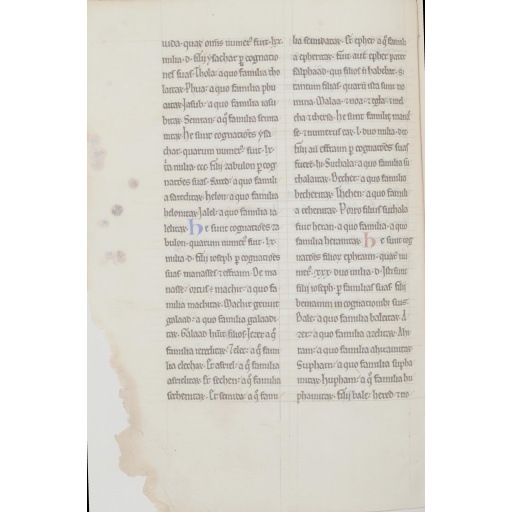 iuda· quar omis numer fuit· lxx·
milia· d· filii ysachar p cognatio
nes suas· Thola· a quo familia tho
laitar· Phua· a quo familia phu
aitar· Jasub· a quo familia iasu
bitar· Semran· a quo familia semra
nitar· he sunt cognationes ysa
char· quarum numer fuit· lx·
milia· ccc· filii zabulon p cog
nationes suas· Sared· a quo famili
a sareditar· helon· a quo familia
helonitar· Jalel· a quo familia ia
lelitar· he sunt cognationes za
bulon· quarum numer fuit· lx·
milia· d· filii ioseph p cognationes
suas· manasse· et effraim· De ma
nasse· ortus e machir· a quo fa
milia machiritar· Machir genuit
galaad· a quo familia galaadi
tar· Galaad huit filios· Jezer· a q
familia iezeritar· Helec· a q fami
lia elechar· Et asriel· a q familia
asrielitar· Et sechen· a q familia
sechenitar· Et semida· a q fami
lia semidatar· Et epher· a q familia
a epheritar· fuit aut epher pater
salphaad· qui filios n habebat· s;
tantum filias· quaru ista sunt no
mina· Maala· et noa· et egla· et mel
cha· et thersa· he sunt familie mana
sse· et numerus ear· l· duo milia· dcc·
filii au effraim p cognationes suas
fuert hi· Suthala· a quo familia su
thalaitar· Becher· a quo familia
becheritar· Thehen· a quo famili
a thehenitar· Porro filius suthala
fuit heran· a quo familia· a quo
familia heranitar· he sunt cog
nationes filior ephraim· quar nu
mer· xxx· duo milia· d· Isti sunt
filii ioseph· p familias suas· filii
beniamin in cognationibr suis·
Bale· a quo familia baleitar· A
zer· a quo familia azelitar· Ahi
ram· a quo familia ahiramitar·
Supham· a quo familia supha
mitar· hupham· a q familia hu
phamitar· filii bale· hered· et no